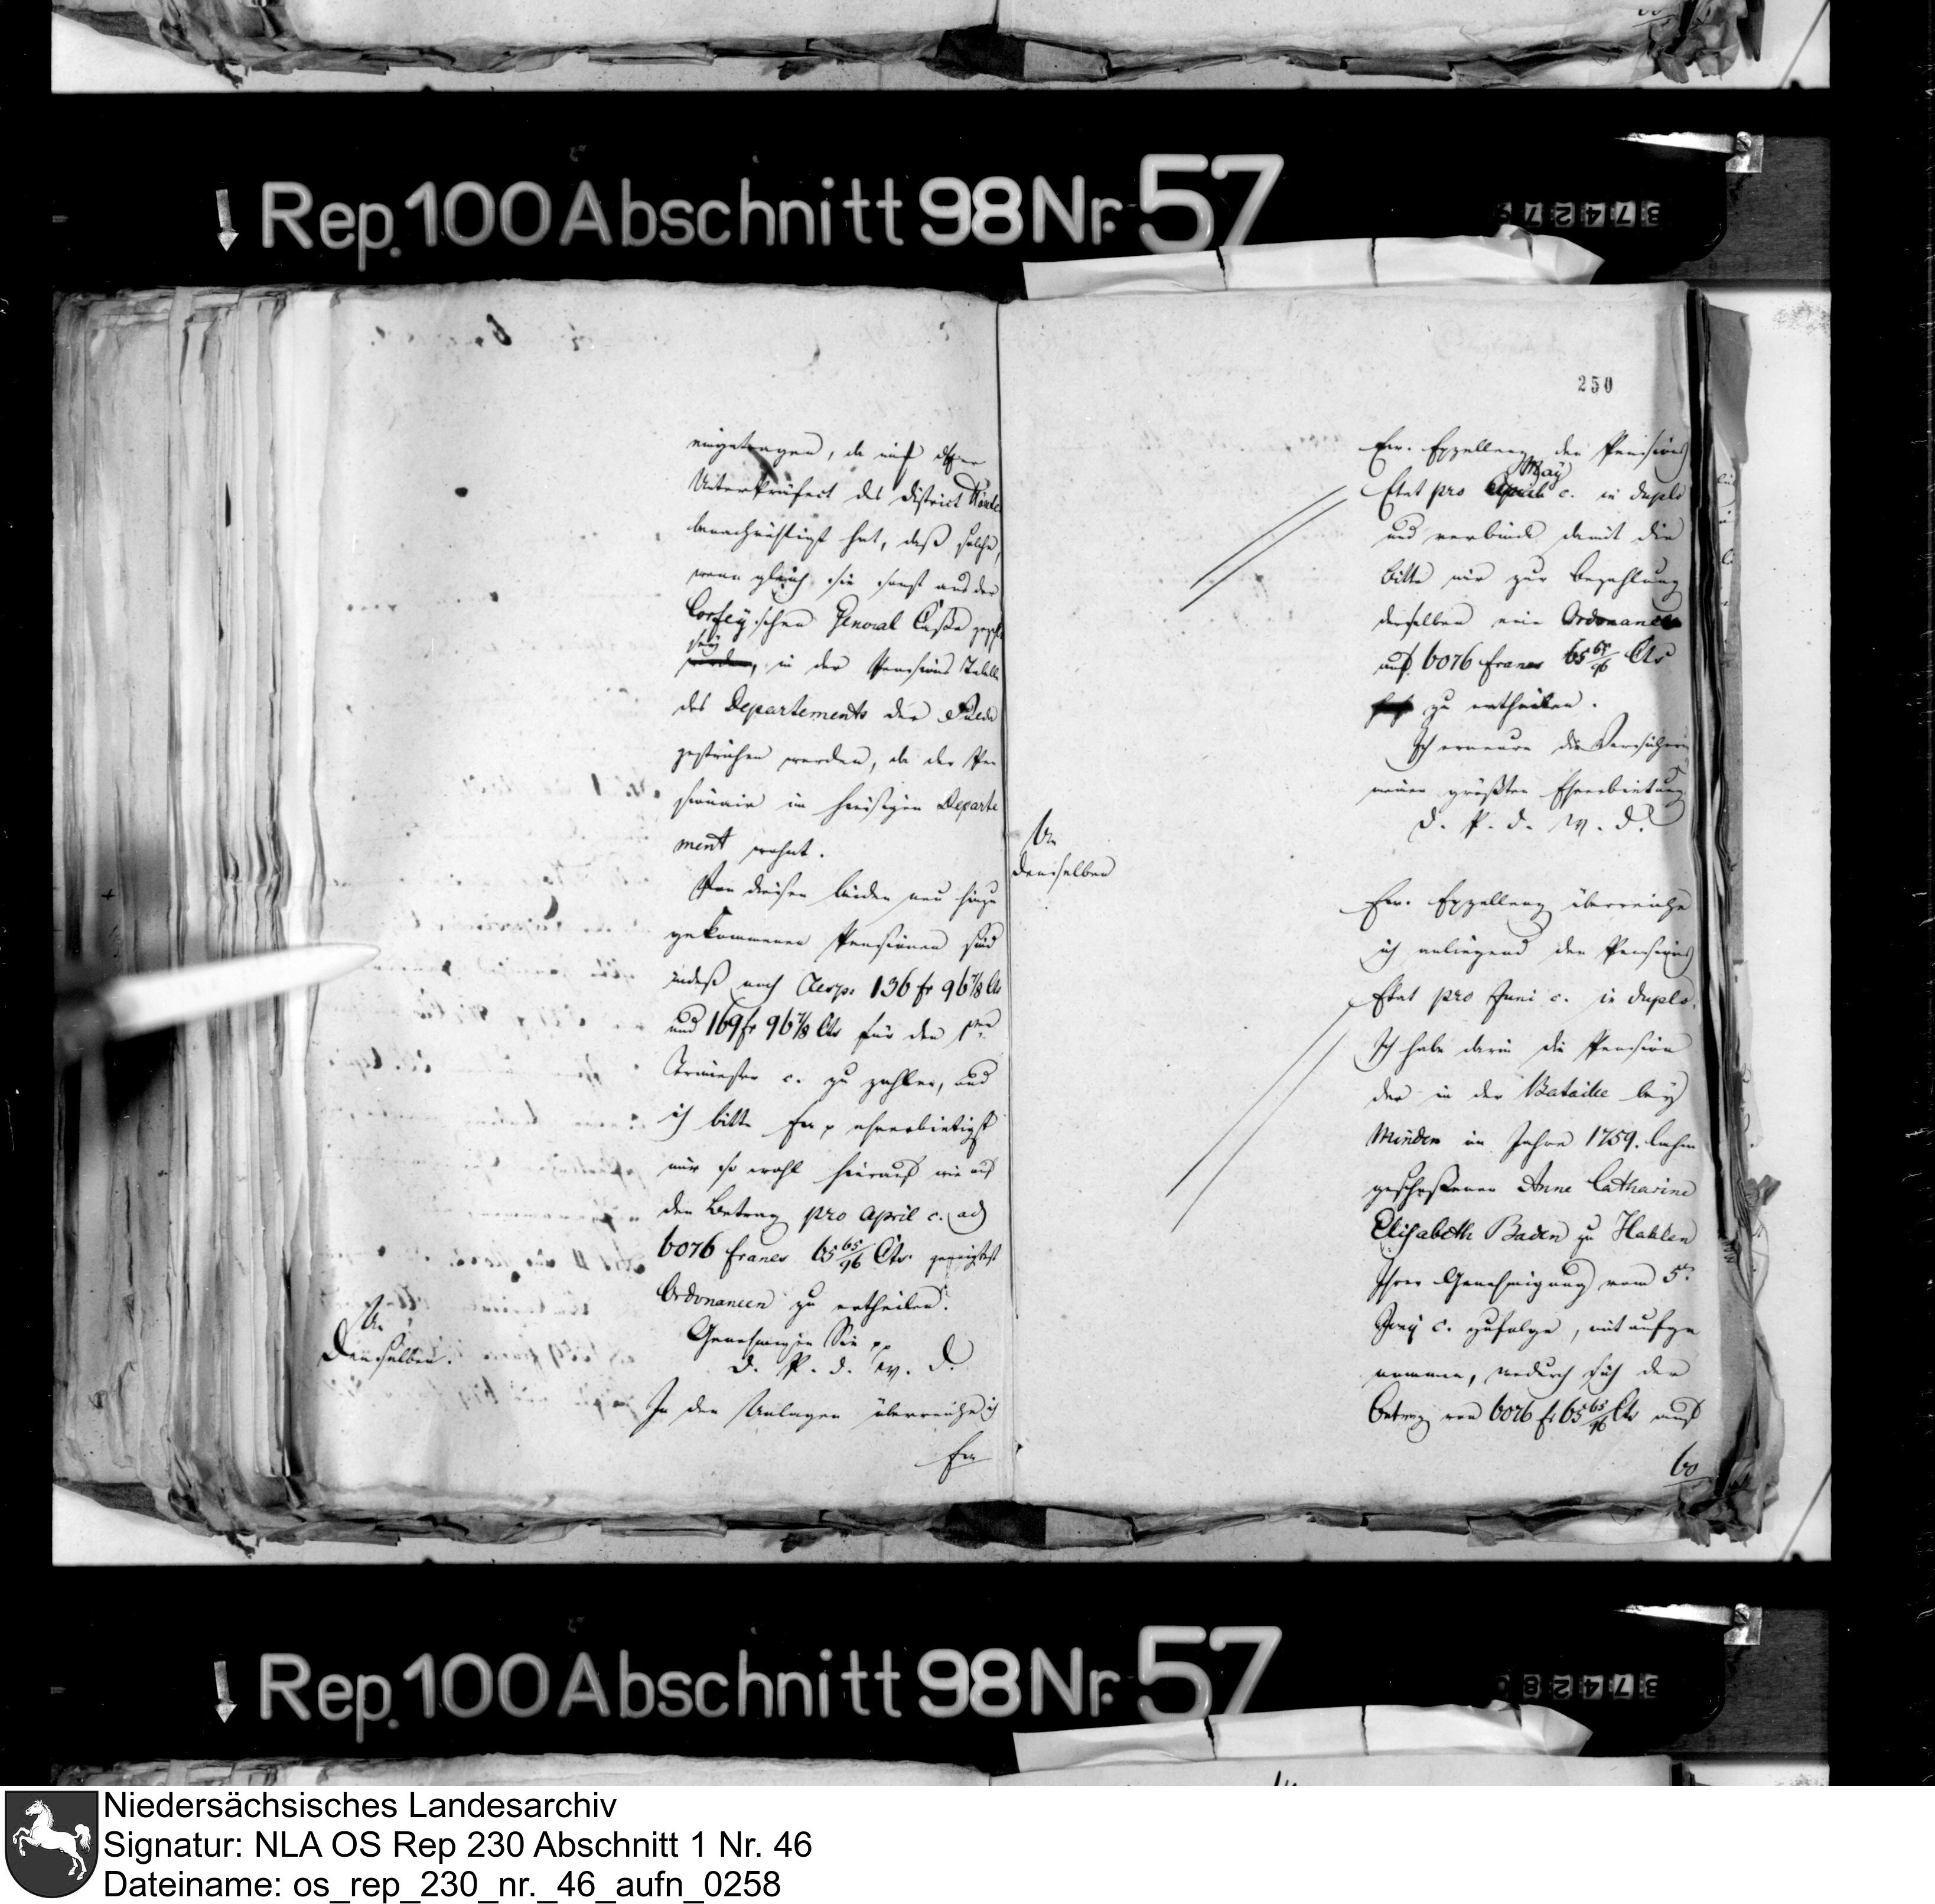 Rep. 100 Abschnitt 98 Nr. 57
250
eingetragen, da mich der
Unterpräfect des District
benachrichtigt hat, daß solche,
wenn gleich sie sonst aus der
Corfey'schen General Casse
sey
in der Pensions Tabelle
des Departements der Fulda
gestrichen werden, da der Pen
sionair im hiesigen Departe
ment wohnt.
Von diesen beiden neu hinzu
gekommenen Pensionen sind
indeß noch resp. 136 fr 96 7/8 Cts
und 169 fr 96 7/8 Cts für den
Trimester c. zu zahlen, und
ich bitte Ew. ehrerbietigst
mir so wohl hierauf wie auf
den Betrag pro April c. ad
6076 Francs 65 65/96 Cts. geneigtest
Ordonancen zu ertheilen.
Genehmigen Sie pp
D. P. d. W. D.
An
Denselben.
In den Anlagen überreiche ich
Ew
Ew. Excellenz den Pensions
May
Etat pro April c. in duplo
und verbinde damit die
Bitte mir zur Bezahlung
derselben eine Ordonance
auf 6076 Francs 65 65/96 Cts
zu ertheilen.
Ich erneure die Versicherung
meiner größten Ehrerbietung
D. P. d. W. D.
An
denselben
Ew. Excellenz überreiche
ich anliegend den Pensions
Etat pro Juni c. in duplo.
Ich habe darin die Pension
der in der Bataille bey
Minden im Jahre 1759. lahm
geschossenen Anne Catharine
Elisabeth Baden zu Hahlen
Ihrer Genehmigung vom 5t.
c. zufolge, mit aufge
nommen, wodurch sich der
Betrag von 6076 fr 65 65/96 Cts auf
60
Rep. 100 Abschnitt 98 Nr. 57
Niedersächsisches Landesarchiv
Signatur: NLA OS Rep 230 Abschnitt 1 Nr. 46
Dateiname: os_rep_230_nr._46_aufn_0258